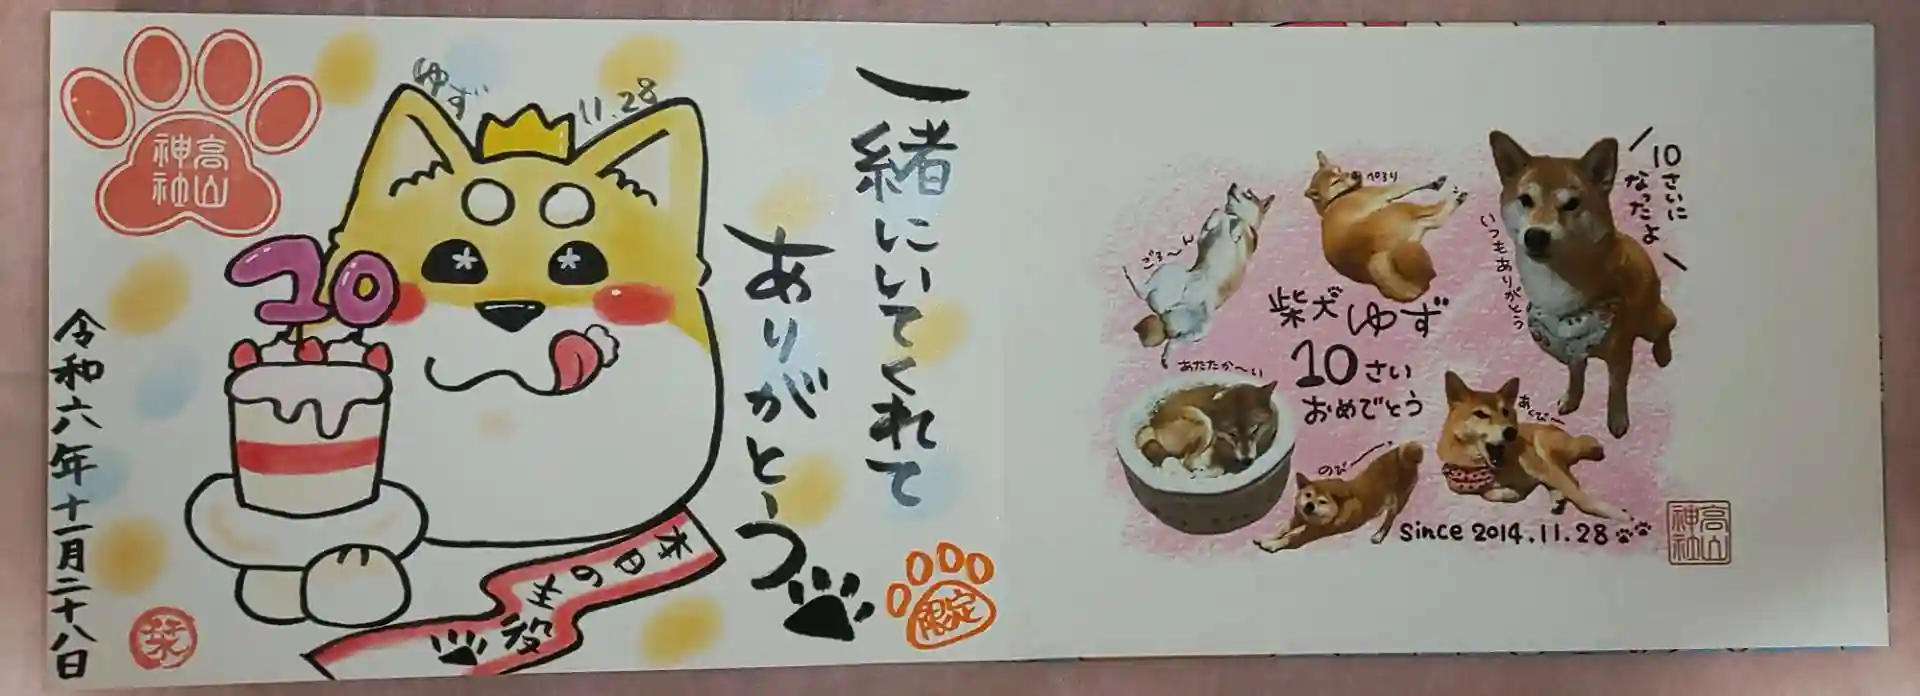 一緒にいてくれて
ありがとう
ゆず
11.28
高山
神社
10
本日の主役
限定
令和六年十一月二十八日
栞
10さいに
なったよ
いつもありがとう
ぺろり
ごろ〜ん
柴犬ゆず
10さい
おめでとう
あたたか〜い
のび〜
あくび〜
since 2014.11.28
高山
神社